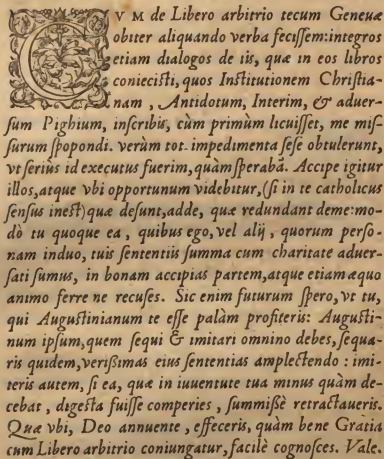 CVM de Libero arbitrio tecum Geneuæ
obiter aliquando verba fecissem: integros
etiam dialogos de iis, quæ in eos libros
coniecisti, quos Institutionem Christia-
nam, Antidotum, Interim, & aduer-
sum Pighium, inscribis, cùm primùm licuisset, me mis-
surum spopondi. verùm tot impedimenta sese obtulerunt,
vt seriùs id executus fuerim, quàm sperabā. Accipe igitur
illos, atque vbi opportunum videbitur, (si in te catholicus
sensus inest) quæ desunt, adde, quæ redundant deme: mo-
dò tu quoque ea, quibus ego, vel alij, quorum perso-
nam induo, tuis sententiis summa cum charitate aduer-
sati sumus, in bonam accipias partem, atque etiam æquo
animo ferre ne recuses. Sic enim futurum spero, vt tu,
qui Augustinianum te esse palàm profiteris: Augusti-
num ipsum, quem sequi & imitari omnino debes, sequa-
ris quidem, verissimas eius sententias amplectendo: imi-
teris autem, si ea, quæ in iuuentute tua minus quàm de-
cebat, digesta fuisse comperies, summissè retractaueris.
Quæ vbi, Deo annuente, effeceris, quàm bene Gratia
cum Libero arbitrio coniungatur, facilè cognosces. Vale.